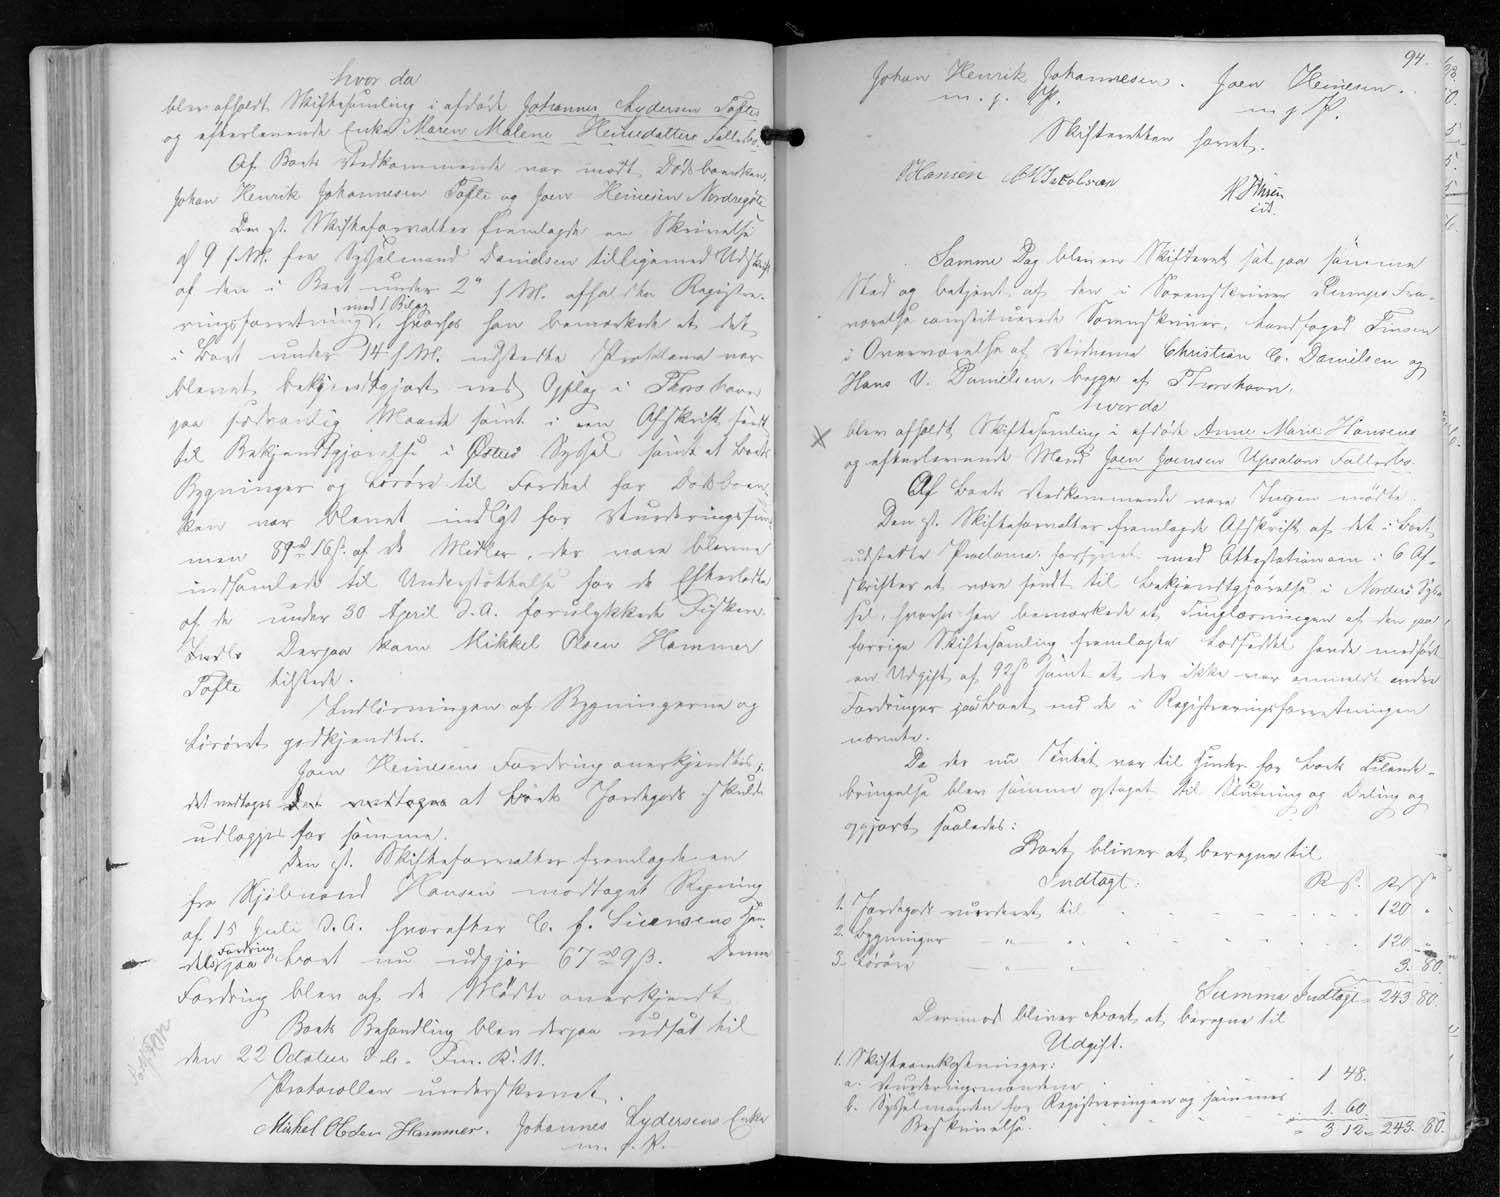 hvor da
blev afholdt Skiftesamling i afdøde Johannes Lydersen Tofte
og efterlevende Enke Maren Malene Heinedatters Fællesbo.
Af Boets Vedkommende var mødt Dødsboenken,
Johan Henrik Johannesen Tofte og Joen Heinesen Nordregøte
Den gl. Skifteforvalter fremlagde en Skrivelse
af 9 f.M. fra Sysselmand Danielsen tilligemed Udskrift
af den i Boet under 2n f.M. afholdte Registre-
ringsforretning, med 1 Bilag, hvorhos han bemærkede at det
i Boet under 14 f.M. udstedte Proklama var
blevet bekjendtgjort ved Opslag i Thorshavn
paa sædvanlig Maade samt i en Afskrift sendt
til Bekjendtgjørelse i Østerø Syssel samt at Boets
Bygninger og Løsøre til Fordel for Dødsboen-
ken var blevet indløst for Vurderingssum-
men 89 rd 16 s. af de Midler, der vare blevne
indsamlede til Understøttelse for de Efterladte
af de under 30 April d.A. forulykkede Fiskere.
Derpaa kom Mikkel Olsen Hammer
Tofte tilstede.
Indløsningen af Bygningerne og
Løsøret godkjendtes.
Joen Heinesens Fordring anerkjendtes,
det vedtoges at Boets Jordegods skulde
udlægges for samme.
Den gl. Skifteforvalter fremlagde en
fra Kjøbmand Hansen modtaget Regning
af 15 Juli d.A. hvorefter C. f. Siemsens Han-
dels Fordring paa Boet nu udgjør 67 rd 9 ß. Denne
Fordring blev af de Mødte anerkjendt.
Boets Behandling blev derpaa udsat til
den 22 October d.A. Fm. Kl. 11.
Protocollen underskrevet.
Mickel Olsen Hammer. Johannes Lydersens Enke
m. f. P.
94.
Johan Henrik Johannesen. Joen Heinesen.
m. f. P. m f P.
Skifteretten hævet.
Hansen
Samme Dag blev en Skifteret sat paa samme
Sted og betjent af den i Sorenskriver Lunges Fra-
værelse constituerede Sorenskriver, Landfoged Finsen
i Overværelse af Vidnerne Christian C. Danielsen og
Hans V. Danielsen, begge af Thorshavn,
hvor da
blev afholdt Skiftesamling i afdøde Anne Marie Hansens
og efterlevende Mand Joen Joensen Upsalons Fællesbo.
Af Boets Vedkommende vare Ingen mødte.
Den gl. Skifteforvalter fremlagde Afskrift af det i Boet
udstedte Proclama, forsynet med Attestation om i 6 Af-
skrifter at være sendt til Bekjendtgjørelse i Norderø Sys-
sel, hvorhos han bemærkede at Tinglæsningen af den paa
forrige Skiftesamling fremlagte Lodseddel havde medført
en Udgift af 92 ß samt at der ikke var anmeldt andre
Fordringer paa Boet, end de i Registreringsforretningen
nævnte.
Da der nu Intet var til Hinder for Boets Tilende-
bringelse blev samme optaget til Slutning og Deling og
opgjort saaledes:
Boet bliver at beregne til
Indtægt: R ß. R ß
1. Jordegods vurderet til 120 "
2. Bygninger — " — 120 "
3. Løsøre — " — 3. 80.
Summa Indtægt 243 80.
Derimod bliver Boet at beregne til
Udgift.
1. Skifteomkostninger:
a. Vurderingsmændene 1 48.
b. Sysselmanden for Registreringen og sammes
Beskrivelse. 1. 60
3 12 243. 80.